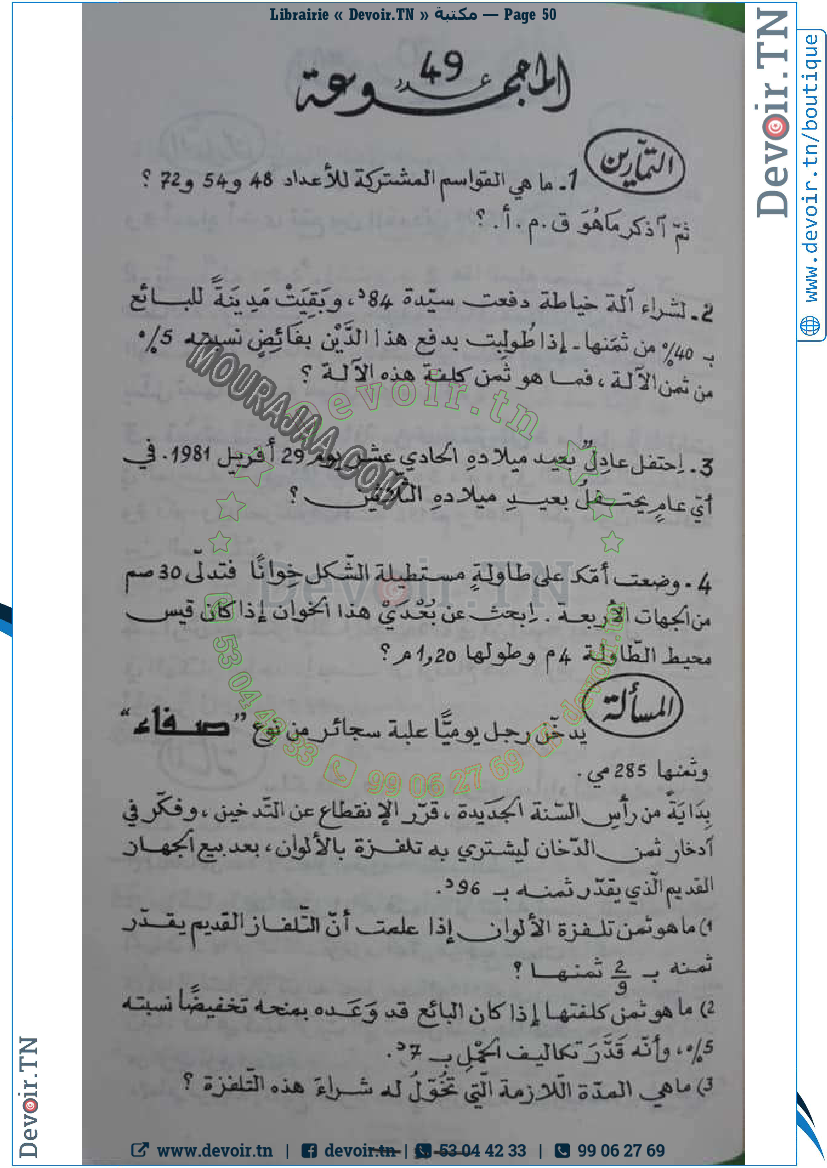 Librairie « Devoir.TN » مكتبة — Page 50
المجموعة عدد 49
التمارين
1- ما هي القواسم المشتركة للأعداد 48 و 54 و 72 ؟
ثمّ آذكر ما هُوَ ق.م.أ. ؟
2- لشراء آلة خياطة دفعت سيّدة 84د، وبَقِيَتْ مَدِينَةً للبائع
بـ 40% من ثمنها - إذا طُولِبت بدفع هذا الدَّيْن بفائضٍ نسبته 5%
من ثمن الآلة، فما هو ثمن كلفة هذه الآلة ؟
3- اِحتفل عادِلٌ بعيد ميلادهِ الحادي عشر يوم 29 أفريل 1981. في
أيّ عامٍ يحتفلُ بعيدِ ميلادهِ الثّلاثين ؟
4- وضعت أمّك على طاولةٍ مستطيلة الشّكل خِوانًا فتدلّى 30 صم
من الجهات الأربعة. اِبحث عن بُعْدَيْ هذا الخوان إذا كان قيس
محيط الطّاولة 4م وطولها 1,20م ؟
المسألة
يدخّن رجل يوميًّا علبة سجائر من نوع "صفاء"
وثمنها 285 مي.
بِدَايَةً من رأس السّنة الجديدة، قرّر الإنقطاع عن التّدخين، وفكّر في
آدخار ثمن الدّخان ليشتري به تلفزة بالألوان، بعد بيع الجهاز
القديم الّذي يقدّر ثمنه بـ 96د.
1) ما هو ثمن تلفزة الألوان إذا علمت أنّ التّلفاز القديم يقدّر
ثمنه بـ 2/9 ثمنها ؟
2) ما هو ثمن كلفتها إذا كان البائع قد وَعَده بمنحه تخفيضًا نسبته
5%، وأنّه قَدَّرَ تكاليف الحمْلِ بـ 7د.
3) ما هي المدّة اللّازمة الّتي تُخَوّلُ له شراءَ هذه التّلفزة ؟
MOURAJAA.COM
devoir.tn
Devoir.TN
53 04 42 33
99 06 27 69
devoir.tn
Devoir.TN
www.devoir.tn/boutique
Devoir.TN
www.devoir.tn | devoir.tn | 53 04 42 33 | 99 06 27 69